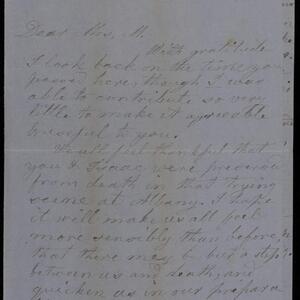 Dear Mrs. M.
With gratitude
I look back on the time you
passed here, though I was
able to contribute so very
little to make it agreeable
& useful to you.
We all feel thankful that
you & Isaac were preserved
from death in that trying
scene at Albany. I hope
it will make us all feel
more sensibly than before,
that there may be but a step
between us and death, and
quicken us in our prepara